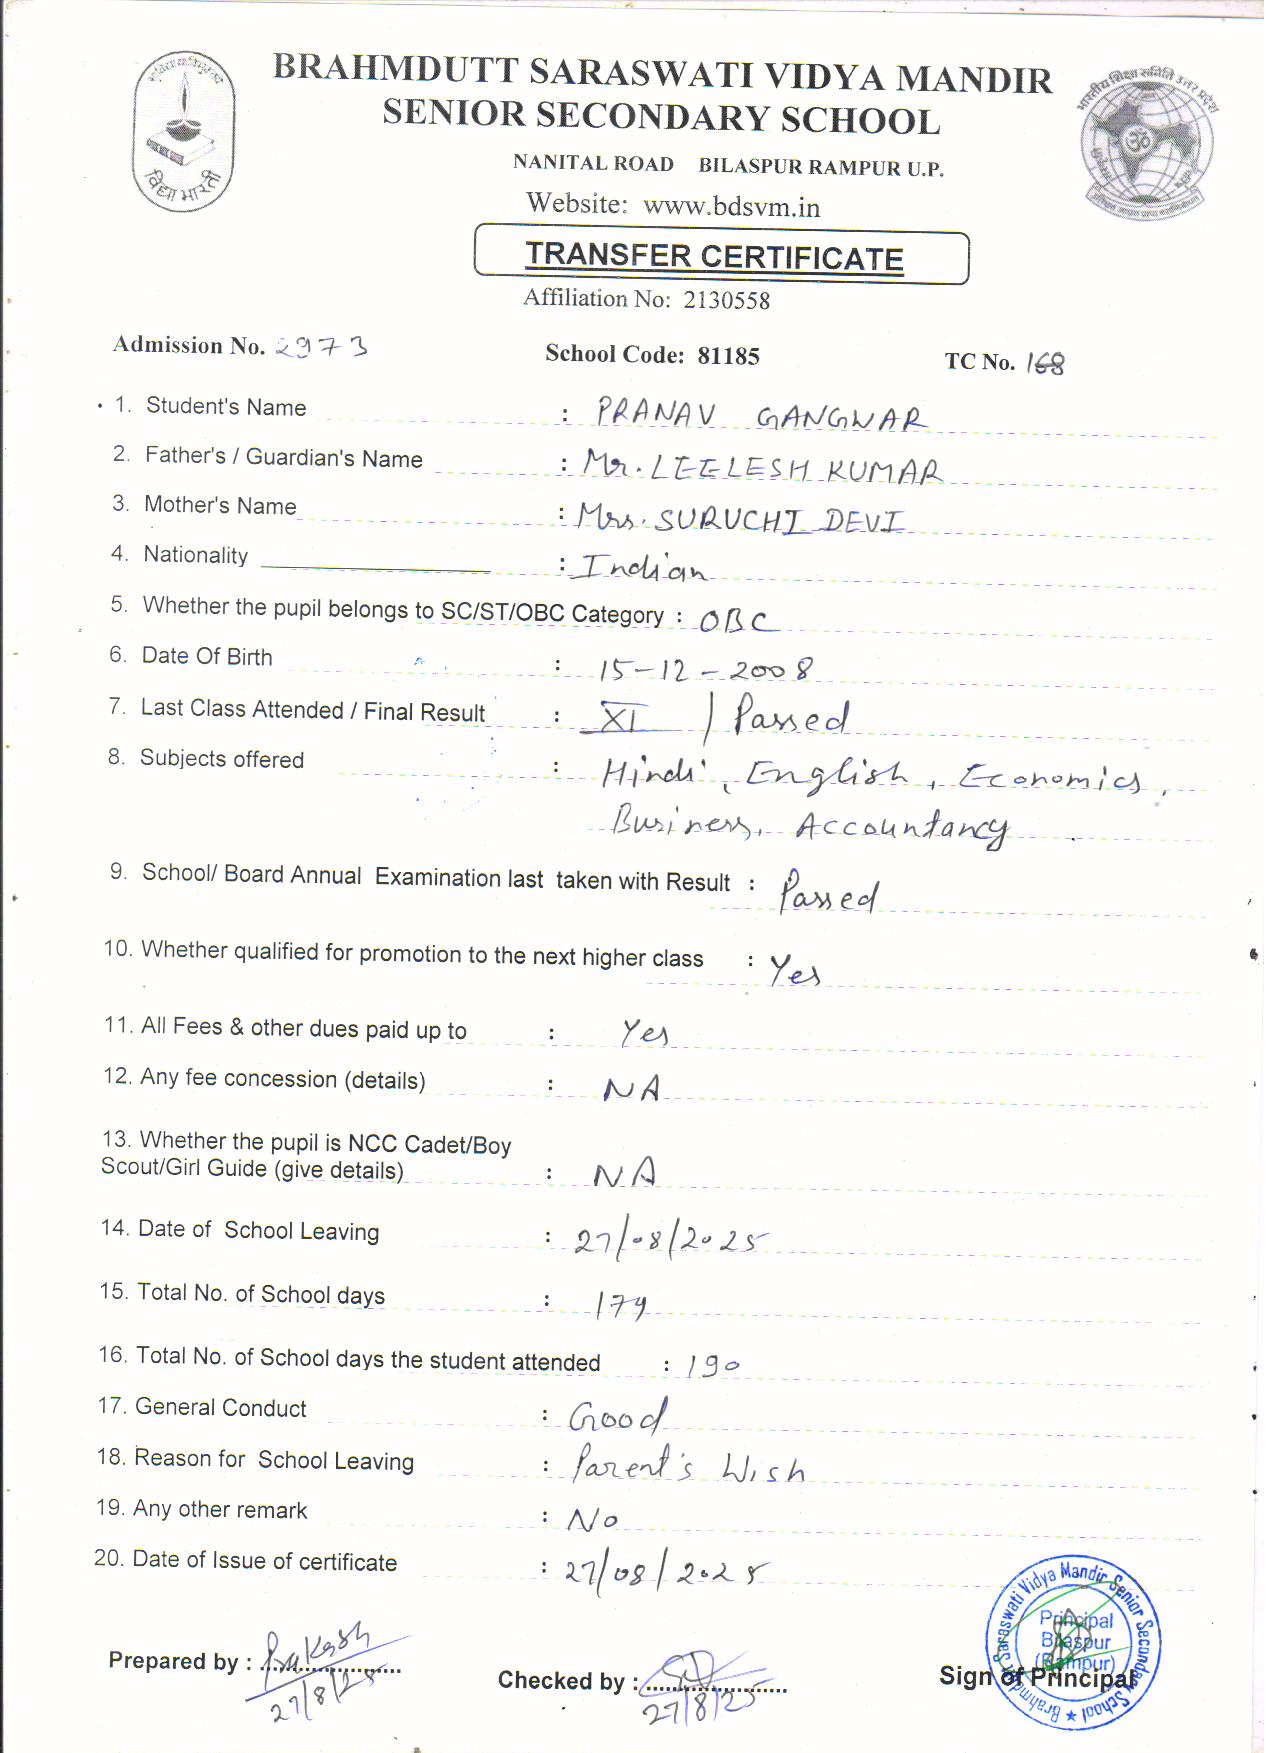 BRAHMDUTT SARASWATI VIDYA MANDIR
SENIOR SECONDARY SCHOOL
NANITAL ROAD BILASPUR RAMPUR U.P.
Website: www.bdsvm.in
विद्या भारती
भारतीय शिक्षा समिति उत्तर प्रदेश
TRANSFER CERTIFICATE
Affiliation No: 2130558
Admission No. 2973 School Code: 81185 TC No. 168
1. Student's Name : PRANAV GANGWAR
2. Father's / Guardian's Name : Mr. LEELESH KUMAR
3. Mother's Name : Mrs. SURUCHI DEVI
4. Nationality : Indian
5. Whether the pupil belongs to SC/ST/OBC Category : OBC
6. Date Of Birth : 15-12-2008
7. Last Class Attended / Final Result : XI / Passed
8. Subjects offered : Hindi, English, Economics,
Business, Accountancy
9. School/ Board Annual Examination last taken with Result : Passed
10. Whether qualified for promotion to the next higher class : Yes
11. All Fees & other dues paid up to : Yes
12. Any fee concession (details) : NA
13. Whether the pupil is NCC Cadet/Boy
Scout/Girl Guide (give details) : NA
14. Date of School Leaving : 27/08/2025
15. Total No. of School days : 179
16. Total No. of School days the student attended : 190
17. General Conduct : Good
18. Reason for School Leaving : Parent's Wish
19. Any other remark : No
20. Date of Issue of certificate : 27/08/2025
Prepared by : 27/8/25
Checked by : 27/8/25
Sign of Principal
Brahmdutt Saraswati Vidya Mandir Senior Secondary School
Principal
Bilaspur
(Rampur)